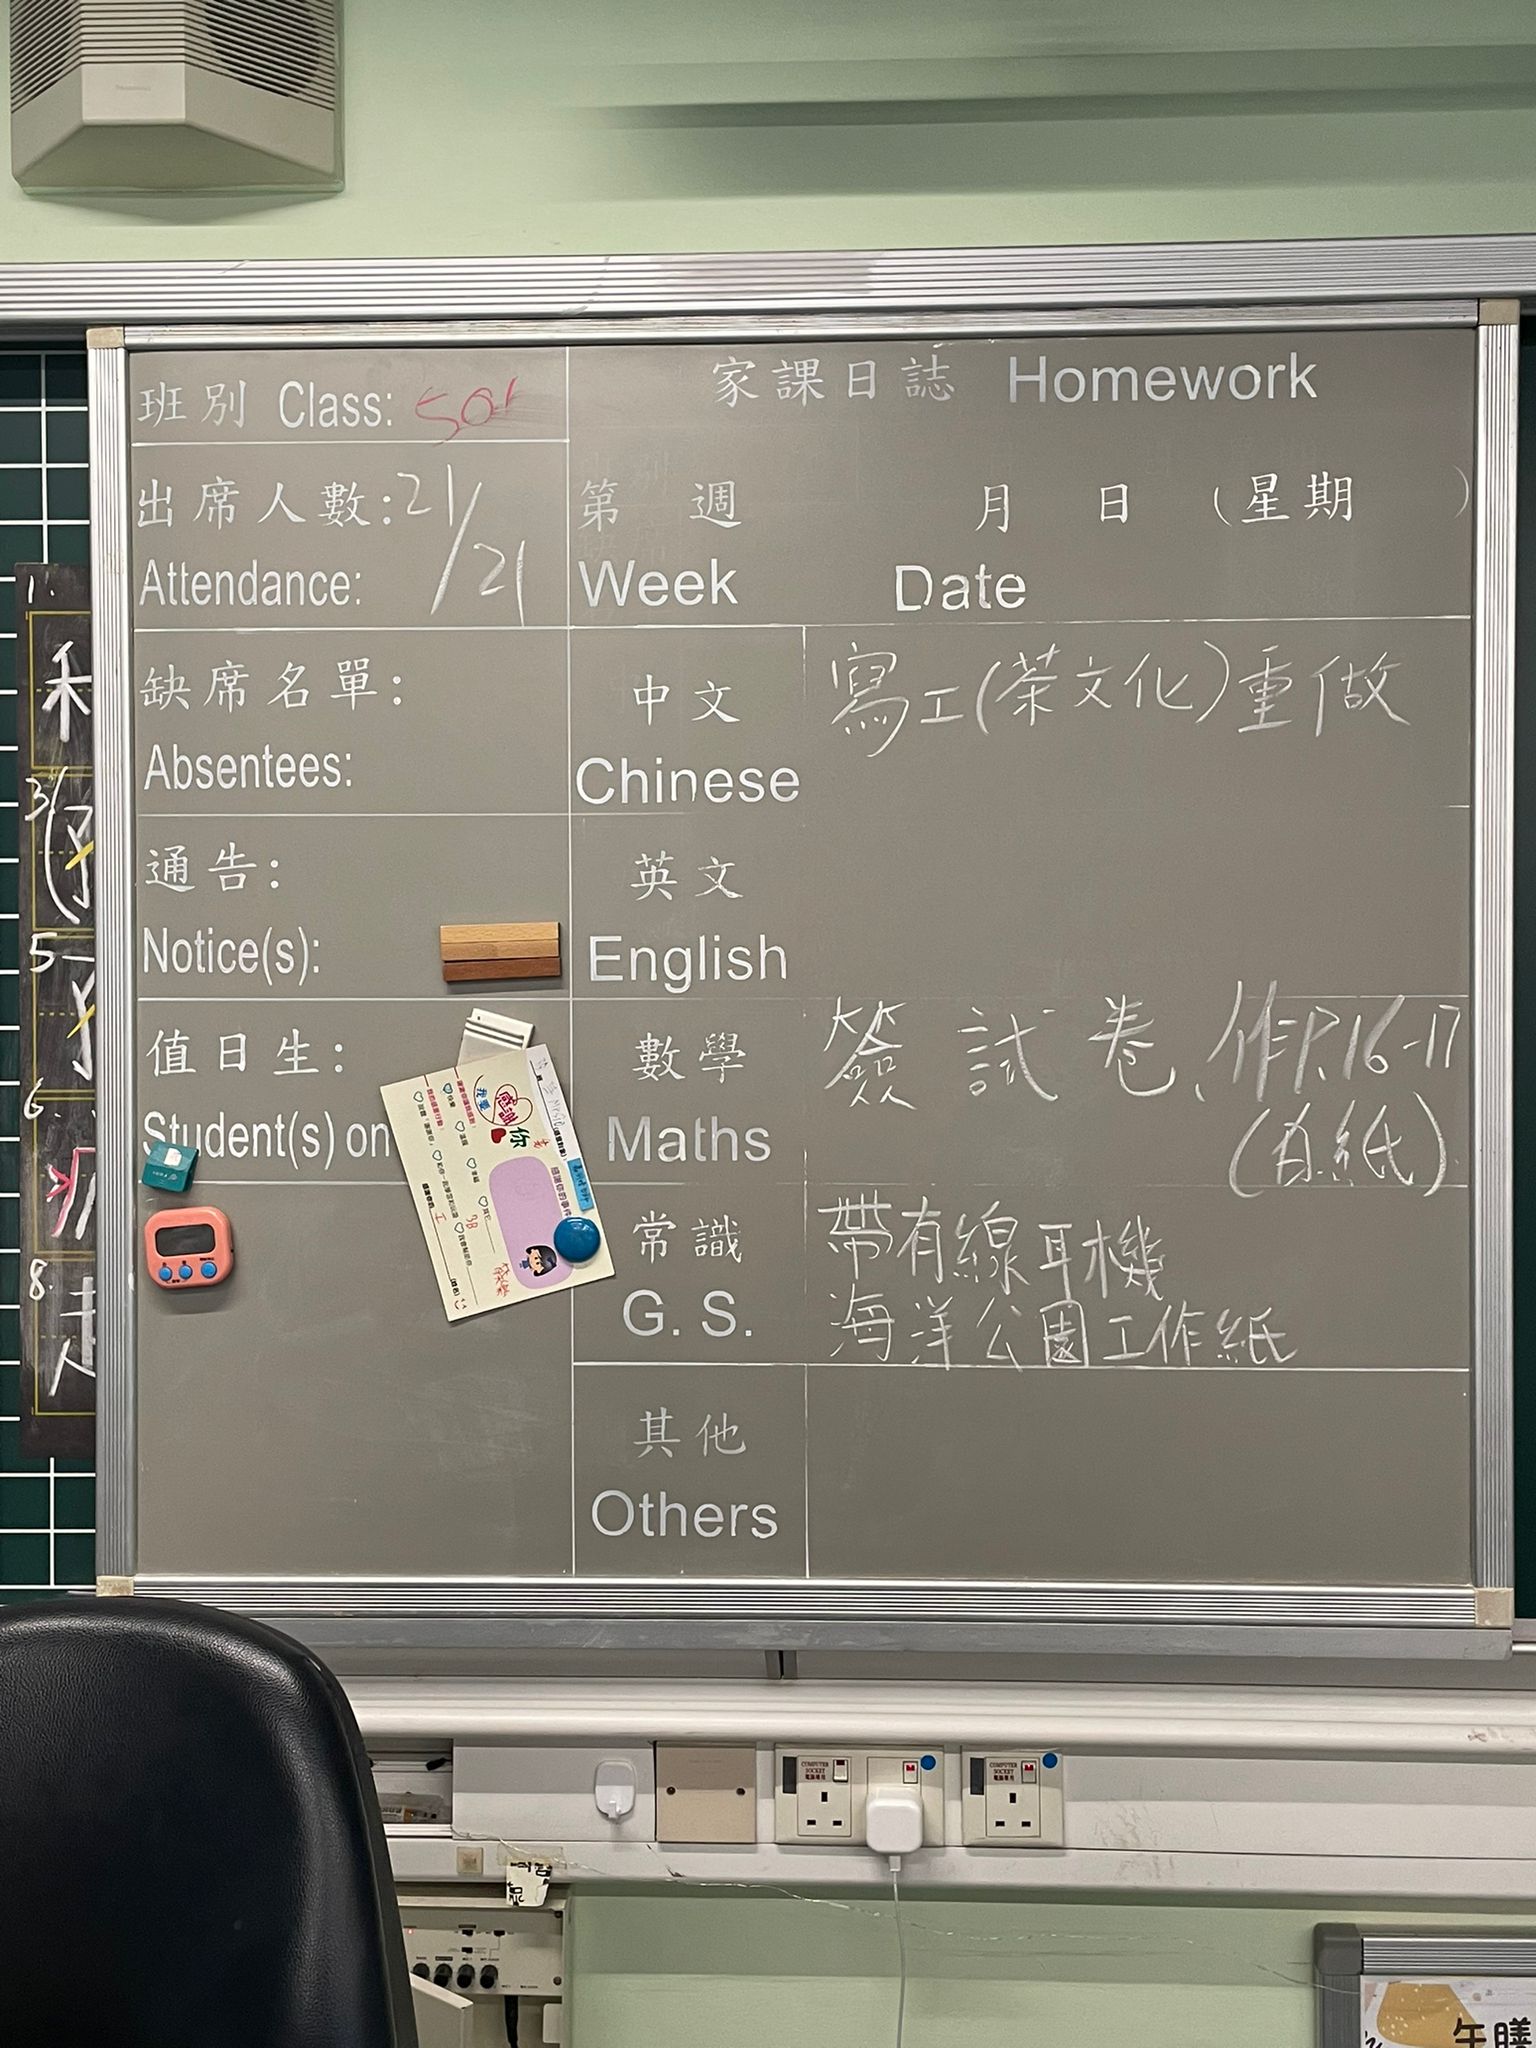 班別 Class: 501
出席人數: 21/21
Attendance:
缺席名單:
Absentees:
通告:
Notice(s):
值日生:
Student(s) on
家課日誌 Homework
第 週 月 日 (星期 )
Week Date
中文 寫工(茶文化)重做
Chinese
英文
English
數學 簽 試 卷、作P.16-17
Maths (白紙)
常識 帶有線耳機
G. S. 海洋公園工作紙
其他
Others
我要
感謝
你
3B
1.
3
5
6.
8.
COMPUTER
SOCKET
電腦專用
COMPUTER
SOCKET
電腦專用
午膳